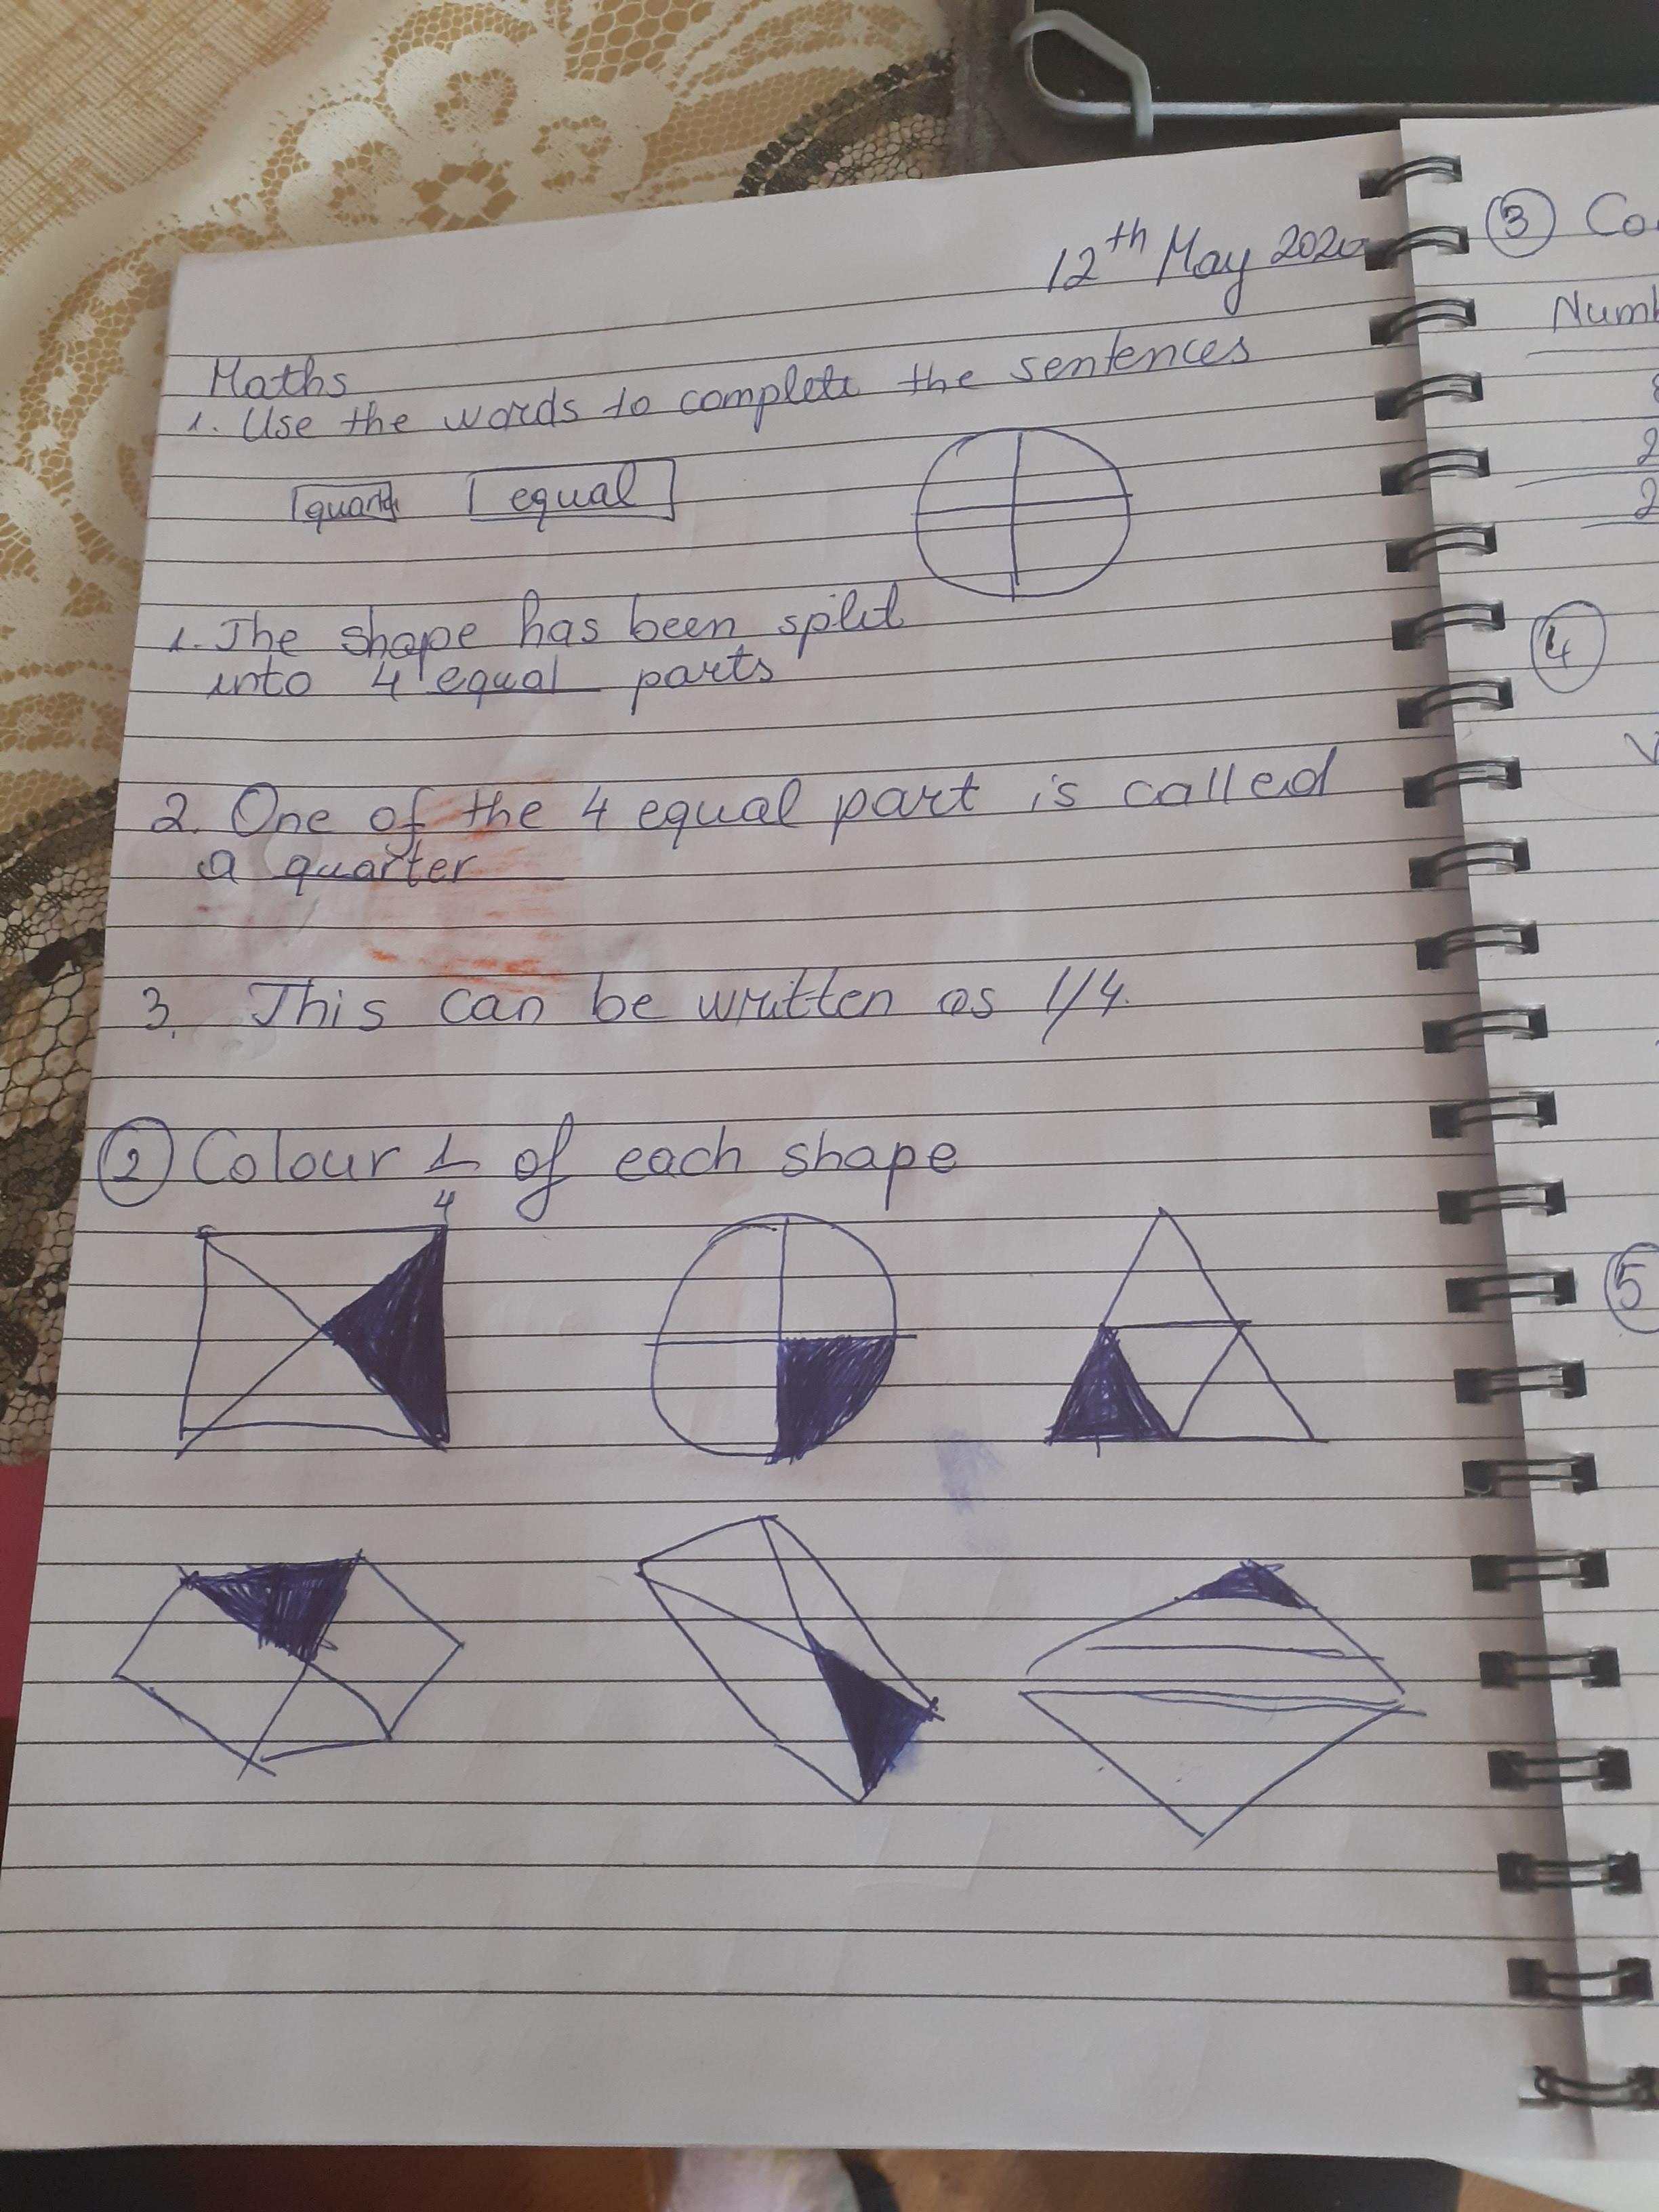 12th May 2020
Maths
1. Use the words to complete the sentences
equal
1. The shape has been split
into 4 equal parts
2. One of the 4 equal part is called
a quarter
3. This can be written as 1/4.
2 Colour 1/4 of each shape
3 Co
Numb
2
2
4
5